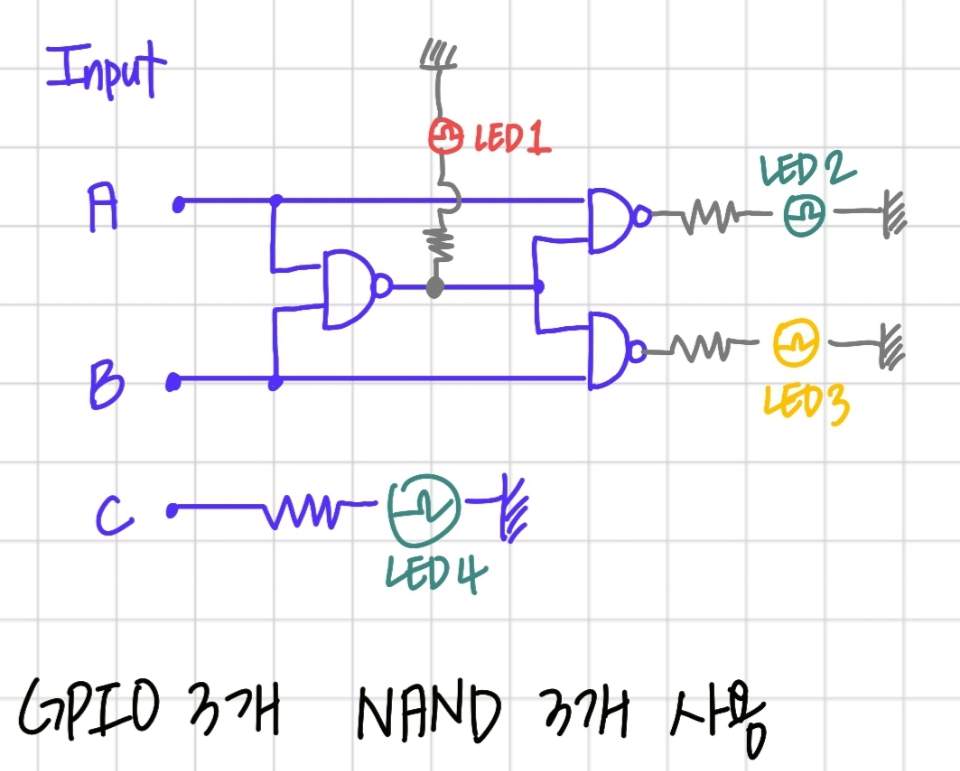 Input
LED1
LED2
A
LED3
B
C
LED4
GPIO 3개 NAND 3개 사용